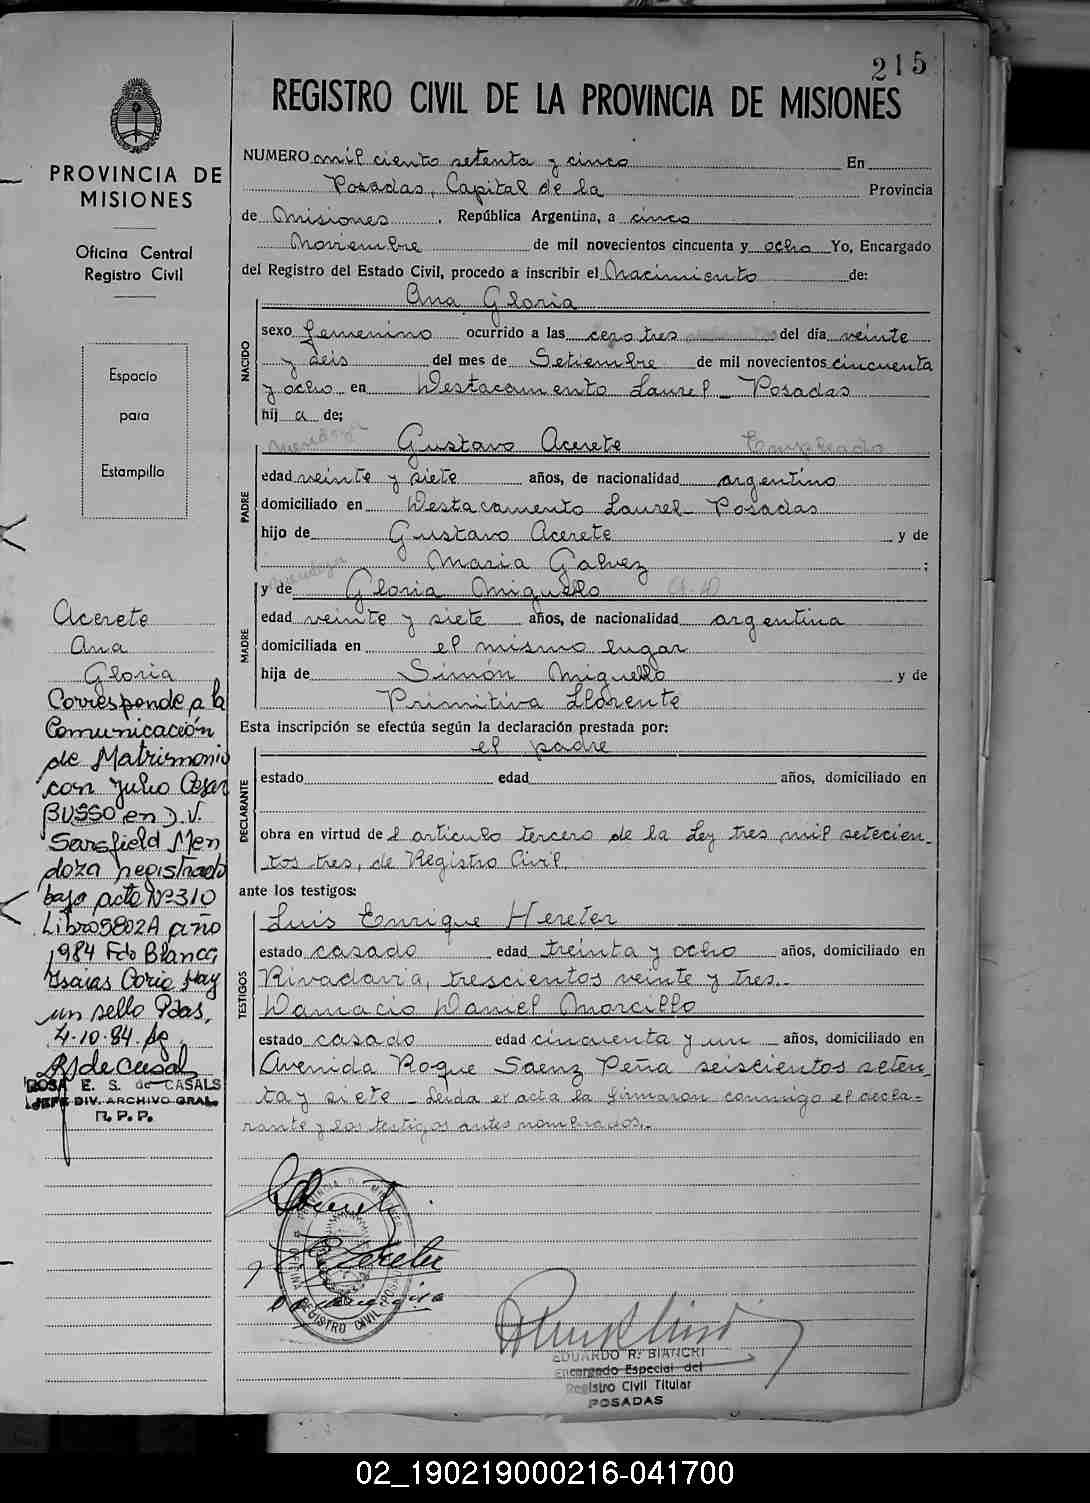 215
REGISTRO CIVIL DE LA PROVINCIA DE MISIONES
PROVINCIA DE
MISIONES
Oficina Central
Registro Civil
Espacio
para
Estampilla
NUMERO mil ciento setenta y cinco En
Posadas, Capital de la Provincia
de Misiones, República Argentina, a cinco
Noviembre de mil novecientos cincuenta y ocho Yo, Encargado
del Registro del Estado Civil, procedo a inscribir el Nacimiento de:
Ana Gloria
NACIDO
sexo femenino ocurrido a las cero tres del día veinte
y seis del mes de Setiembre de mil novecientos cincuenta
y ocho en Destacamento Laurel - Posadas
hij a de;
Mendoza Gustavo Acerete Empleado
PADRE
edad veinte y siete años, de nacionalidad argentino
domiciliado en Destacamento Laurel - Posadas
hijo de Gustavo Acerete y de
Maria Galvez ;
Mendoza
y de Gloria Miguello
MADRE
edad veinte y siete años, de nacionalidad argentina
domiciliada en el mismo lugar
hija de Simón Miguello y de
Primitiva Llorente
Esta inscripción se efectúa según la declaración prestada por:
el padre
DECLARANTE
estado edad años, domiciliado en
obra en virtud de l artículo tercero de la Ley tres mil setecien-
tos tres, de Registro Civil.
ante los testigos:
Luis Enrique Hereter
TESTIGOS
estado casado edad treinta y ocho años, domiciliado en
Rivadavia, trescientos veinte y tres.-
Damacio Daniel Morcillo
estado casado edad cincuenta y un años, domiciliado en
Avenida Roque Saenz Peña seiscientos seten-
ta y siete - Leida el acta la firmaron conmigo el decla-
rante y los testigos antes nombrados.-
Acerete
Ana
Gloria
Corresponde a la
Comunicación
de Matrimonio
con Julio Cesar
BUSSO en D.V.
Sarsfield Men
doza registrado
bajo acta Nº 310
Libro 5802A año
1984 Fdo Blanca
Isaias Corio Hay
un sello Pdas,
4-10-84.
RS de Casal
ROSA E. S. de CASALS
JEFE DIV. ARCHIVO GRAL.
R. P. P.
PROVINCIA DE MISIONES
OFICINA REGISTRO CIVIL POSADAS
EDUARDO R. BIANCHI
Encargado Especial del
Registro Civil Titular
POSADAS
02_190219000216-041700